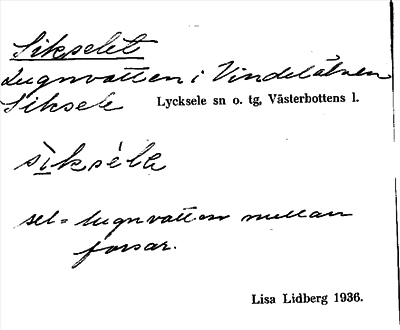 Sikselet
Lugnvatten i Vindelälven
Siksele Lycksele sn o. tg, Västerbottens l.
sìkséla
sel = lugnvatten mellan
forsar.
Lisa Lidberg 1936.